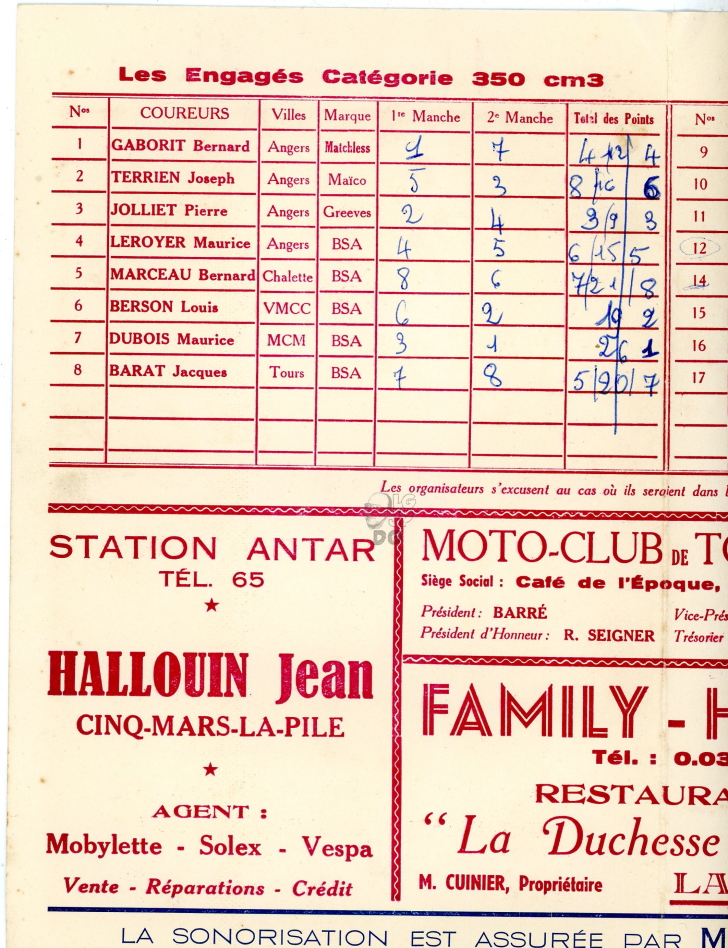 Les Engagés Catégorie 350 cm3
Nos COUREURS Villes Marque 1re Manche 2e Manche Total des Points Nos
1 GABORIT Bernard Angers Matchless 1 7 4 12 4 9
2 TERRIEN Joseph Angers Maïco 5 3 8/16 6 10
3 JOLLIET Pierre Angers Greeves 2 4 3/9 3 11
4 LEROYER Maurice Angers BSA 4 5 6/15 5 12
5 MARCEAU Bernard Chalette BSA 8 6 7/21/8 14
6 BERSON Louis VMCC BSA 6 2 2 15
7 DUBOIS Maurice MCM BSA 3 1 2 6 1 16
8 BARAT Jacques Tours BSA 7 8 5/20/7 17
Les organisateurs s'excusent au cas où ils seraient dans
STATION ANTAR
TÉL. 65
HALLOUIN Jean
CINQ-MARS-LA-PILE
AGENT :
Mobylette - Solex - Vespa
Vente - Réparations - Crédit
MOTO-CLUB DE TO
Siège Social : Café de l'Époque,
Président : BARRÉ Vice-Prés
Président d'Honneur : R. SEIGNER Trésorier
FAMILY - H
Tél. : 0.03
RESTAURA
" La Duchesse
M. CUINIER, Propriétaire LA
LA SONORISATION EST ASSURÉE PAR M